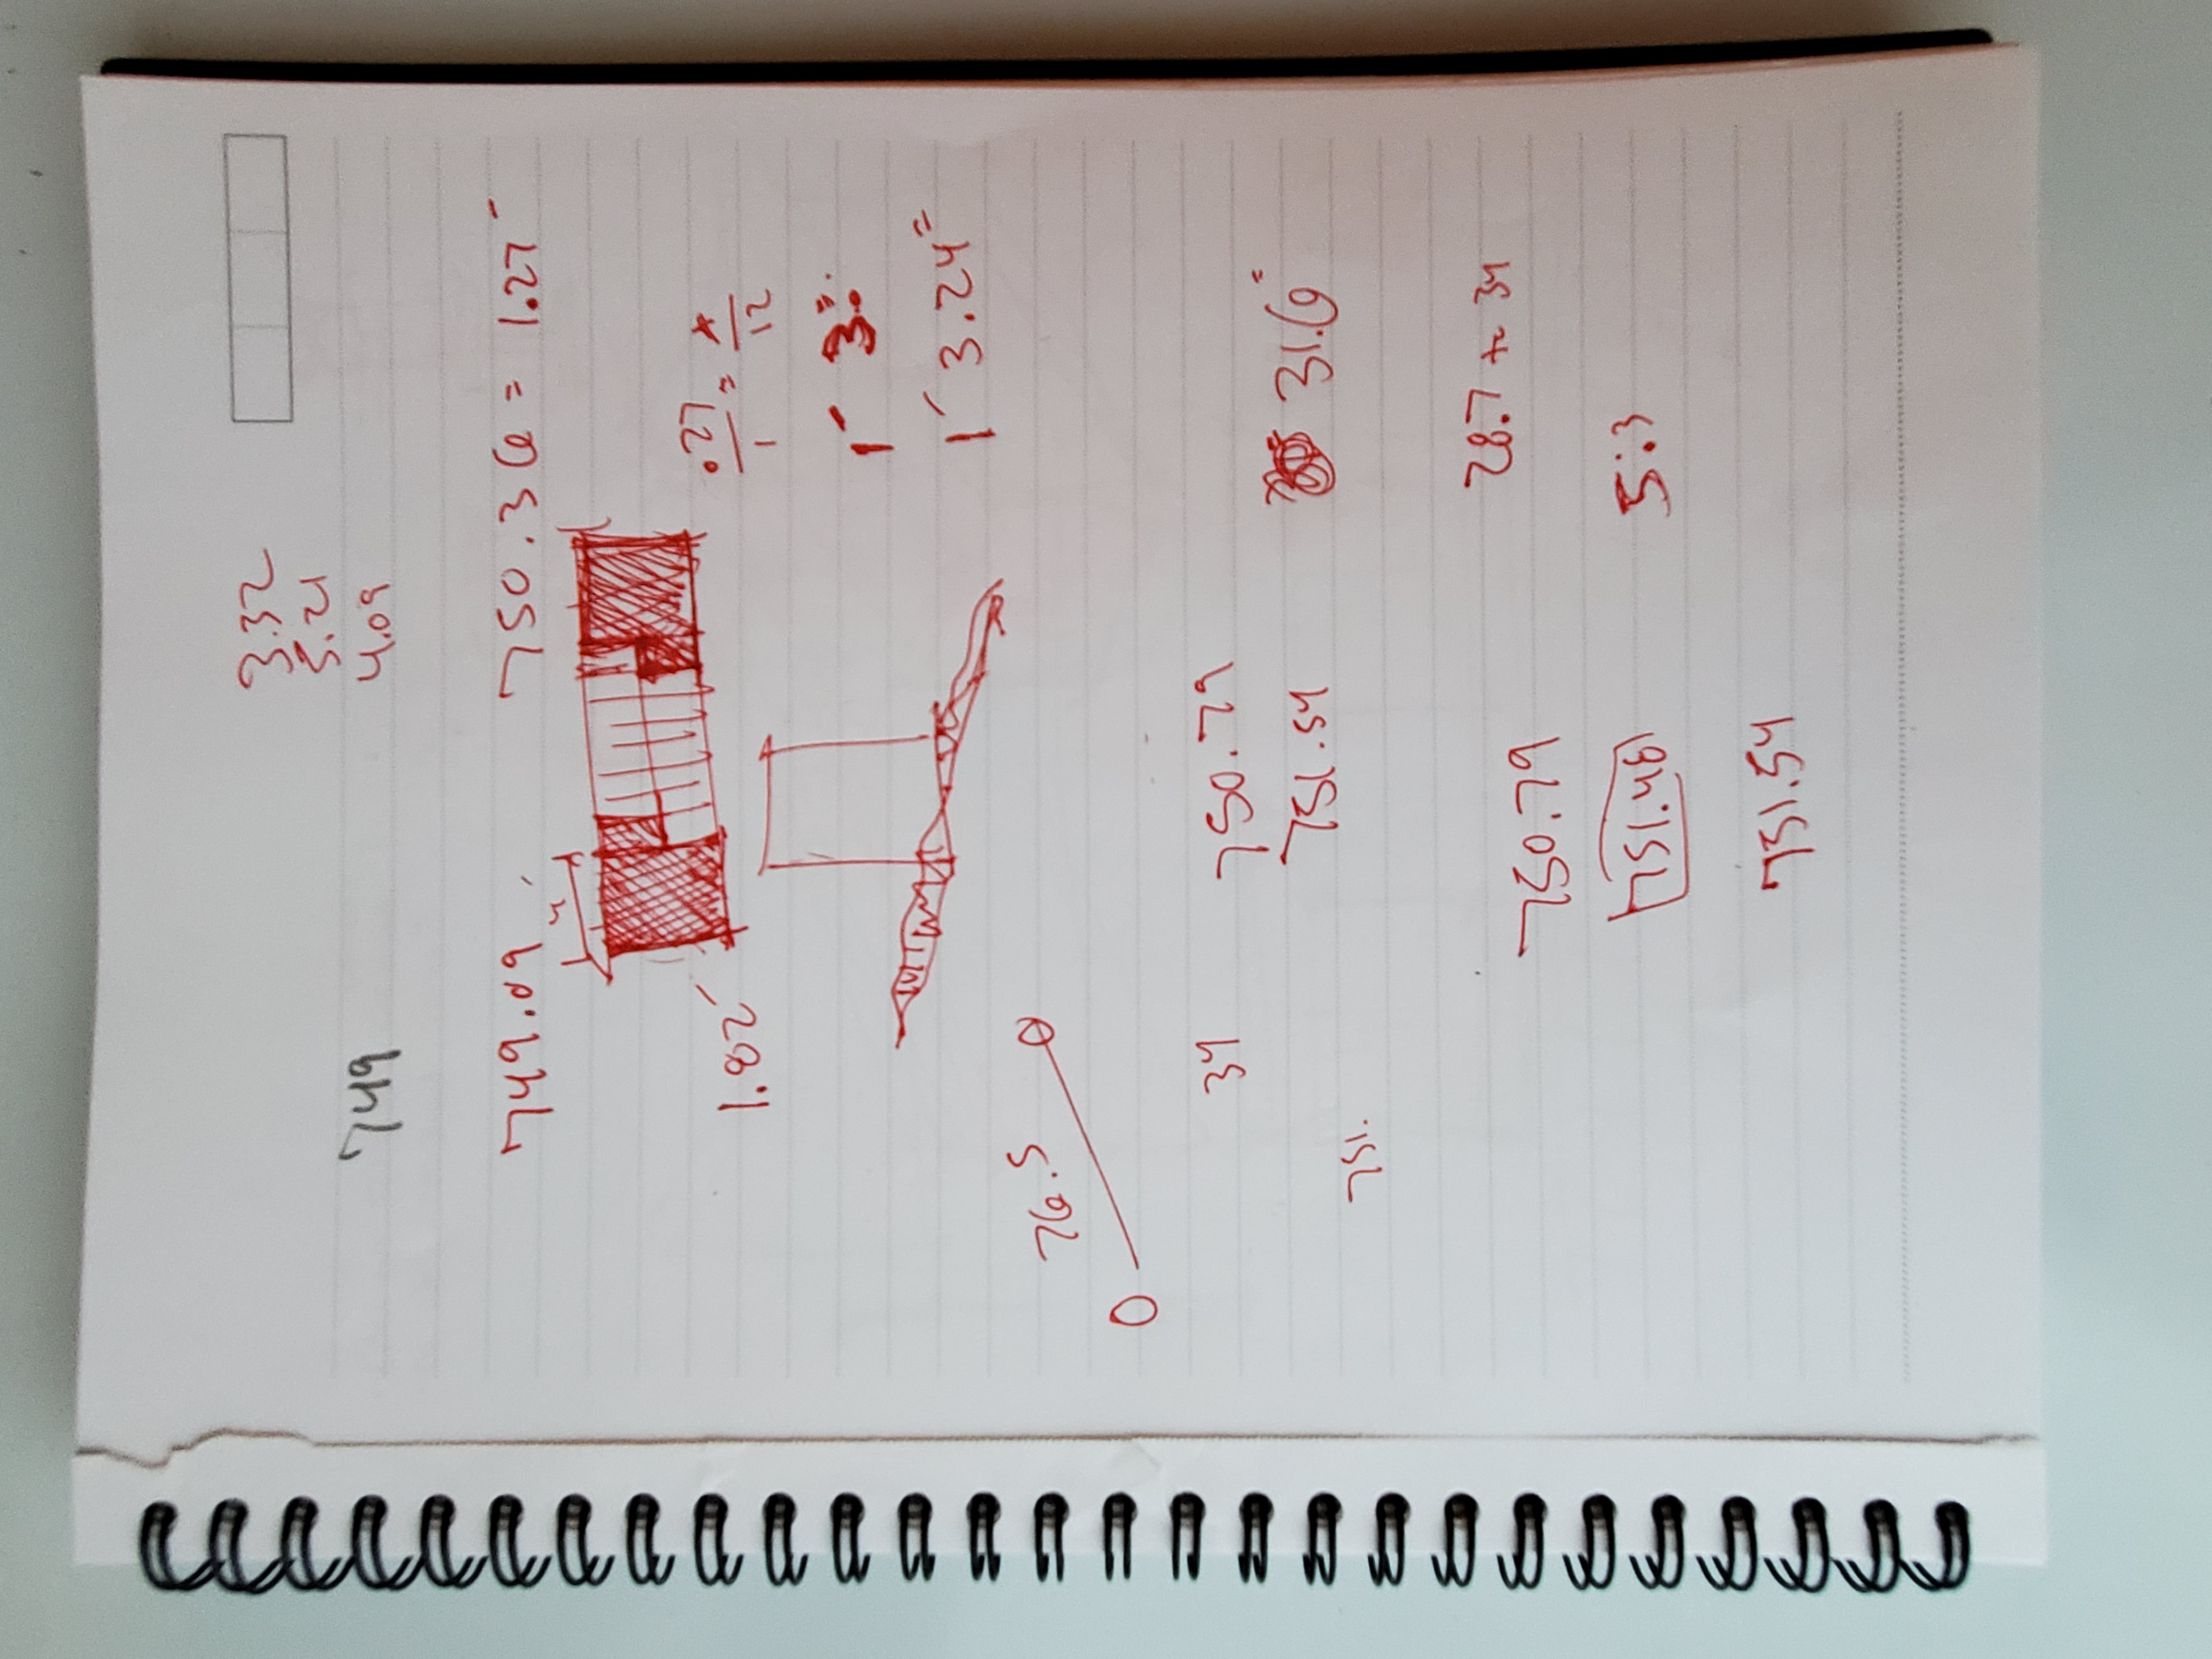 3.32
5.21
4.09
749
749.09 750.36 = 1.27'
4'
.27/1 = x/12
1.82'
1' 3"
1' 3.24"
26.5
34 750.79
751.54 31.6"
751.
28.7 to 34
750.79
751.48 5.3
751.54